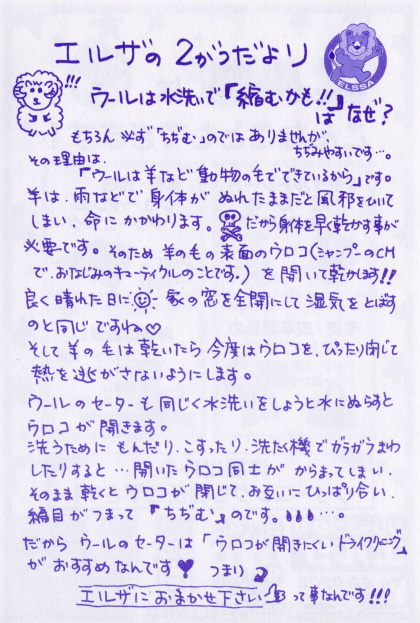 エルザの 2がつだより
ELSSA
!!!
ウールは水洗いで『縮むかも!!』
は なぜ?
もちろん 必ず「ちぢむ」のでは ありませんが、
ちぢみやすいです…。
その理由は、
「ウールは羊など動物の毛でできているから」です。
羊は、雨などで身体が ぬれたままだと風邪をひいて
しまい、命にかかわります。だから身体を早く乾かす事が
必要です。そのため 羊の毛の表面のウロコ(シャンプーのCM
で、おなじみのキューティクルのことです。)を開いて乾かします!!
良く晴れた日に 家の窓を全開にして湿気をとばす
のと同じですね♡
そして羊の毛は乾いたら 今度はウロコを、ぴったり閉じて
熱を逃がさないようにします。
ウールのセーターも同じく水洗いをしようと水にぬらすと
ウロコが開きます。
洗うために もんだり、こすったり、洗たく機でガラガラまわ
したりすると…開いたウロコ同士が からまってしまい、
そのまま乾くとウロコが閉じて、お互いにひっぱり合い、
編目がつまって 『ちぢむ』のです。…。
だから ウールのセーターは「ウロコが開きにくいドライクリーニング」
が おすすめなんです♥ つまり
エルザにおまかせ下さい って事なんです!!!